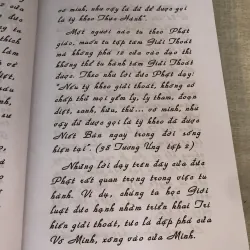 vô minh, như vậy là đã đủ được gọi
là tỳ kheo Thực Hành".
Một người nào tu theo Phật
giáo, muốn tu tập tâm Giải Thoát
mà không phá rõ của vào đạo thì
không thể nào tâm Giải Thoát
được. Theo như lời đức Phật dạy:
"Nếu tỳ kheo giải thoát, không có
chấp thủ mọi yểm ly, ly tham, đoạn
diệt, sanh, hữu, thủ... vô minh, như
vậy đủ được gọi là tỳ kheo đã được
Niết Bàn ngay trong đời sống
hiện tại". (38 Tương Ưng tập 2)
Những lời dạy trên đây của đức
Phật rất quan trọng trong việc tu
hành. Ví dụ, chúng ta học Giới
luật đức hạnh nhằm triển khai Tri
kiến giải thoát, tức là đập phá cửa
Vô Minh, xông vào cửa Minh.